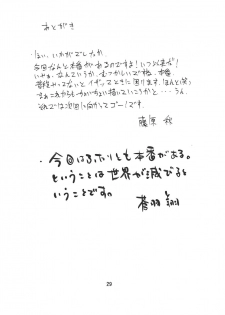 あとがき
・はい、いかがでしたか。
今回なんと本番があるのですよ!いつ以来だ!
いやぁ、なんていうか、むつかしいですね、本番。
普段やってないと イザってときに困ります。ほんと(笑)
まぁこれからもちょいちょい描いていこうかと…うん。
それでは次回に向かってゴー!です。
藤原 秋
・今回はふたりとも本番がある。
ということは世界が滅びると
いうことです。
蒼羽 翔
29